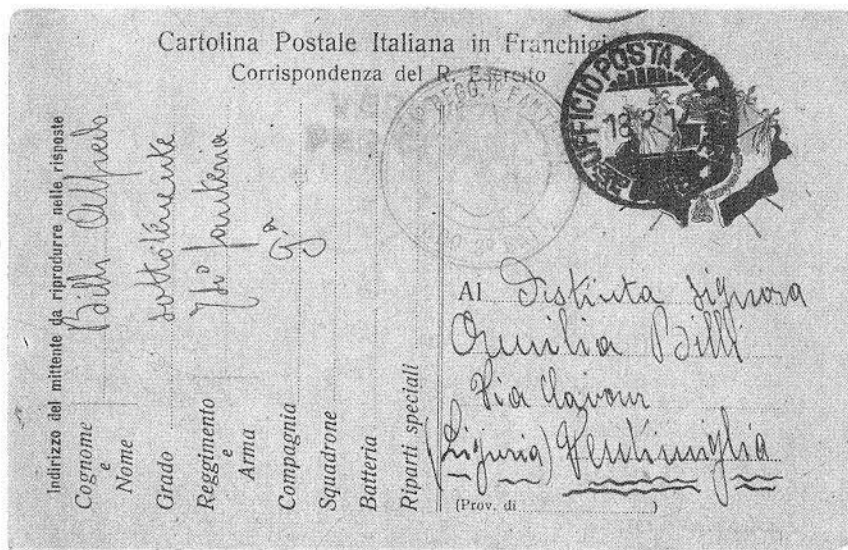 Cartolina Postale Italiana in Franchigia
Corrispondenza del R. Esercito
UFFICIO POSTA MIL
18
REGG.
Indirizzo del mittente da riprodurre nelle risposte
Cognome e Nome Billi Alfredo
Grado sottotenente
Reggimento e Arma fanteria
Compagnia
Squadrone
Batteria
Riparti speciali
Al Distinta signora
Billi
Via Cavour
(Liguria) Ventimiglia
(Prov. di )